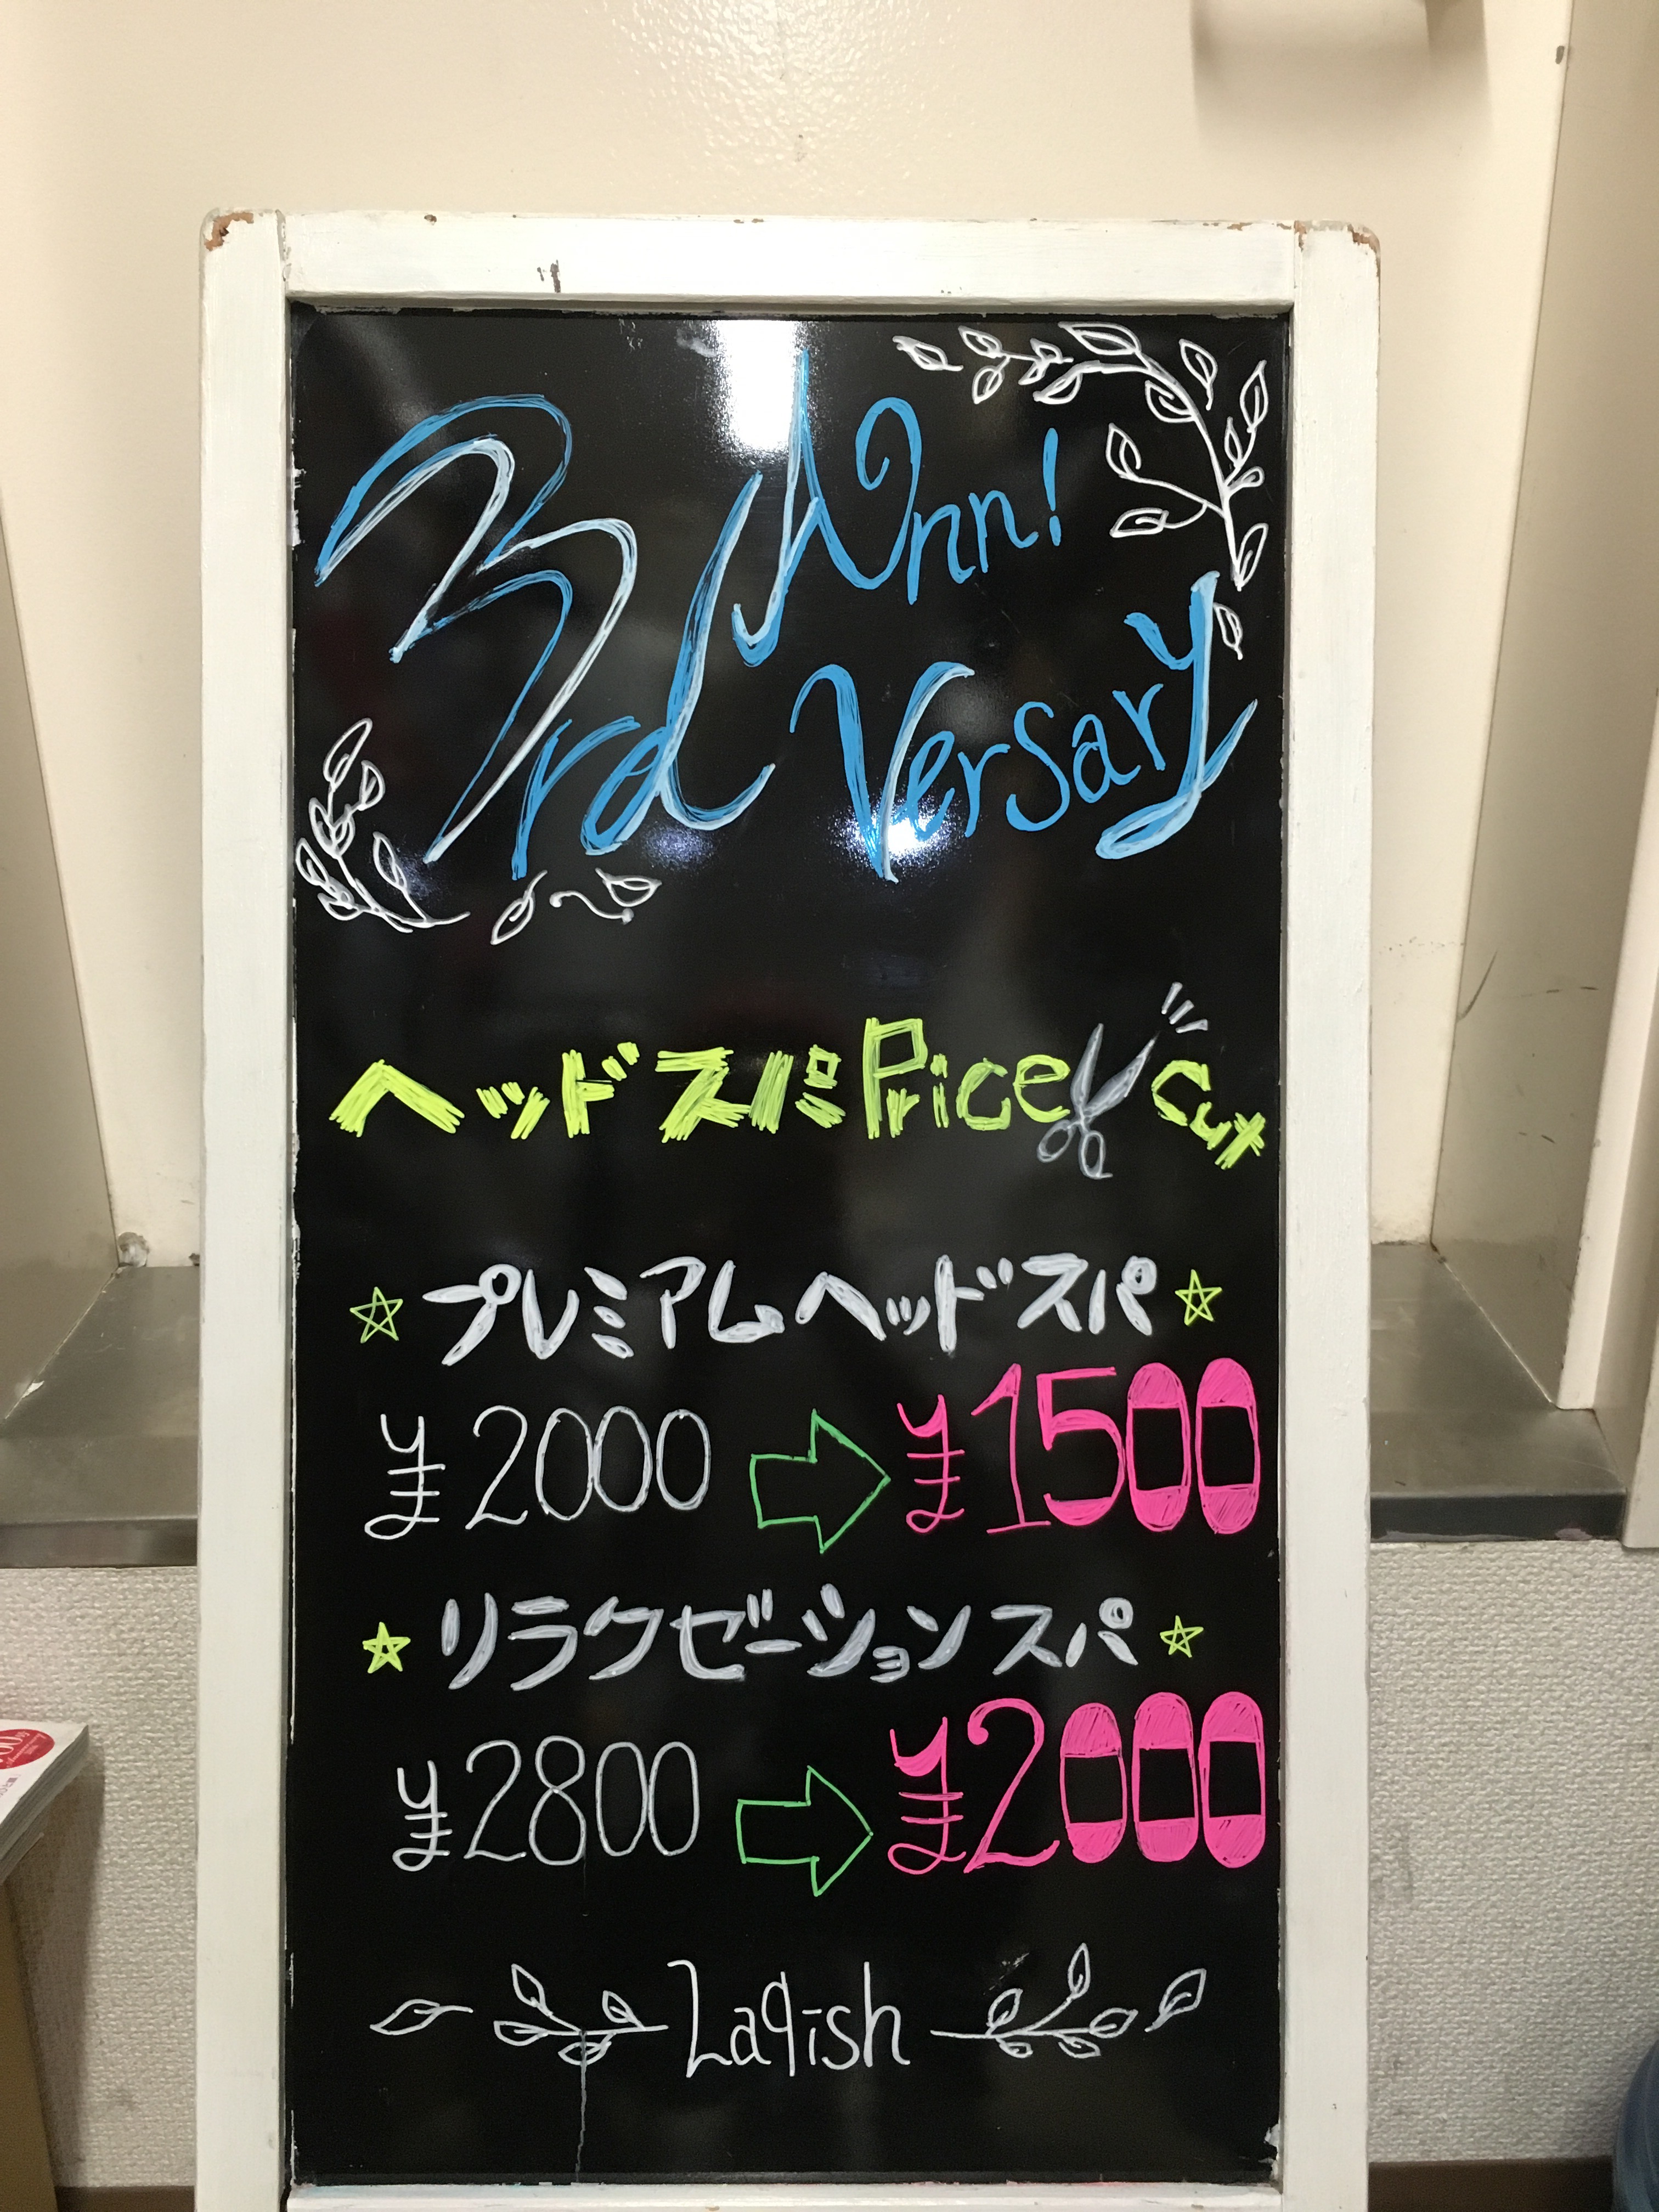 3rd Ann!
Versary
ヘッドスパ Price Cut
プレミアムヘッドスパ
¥2000 ¥1500
リラクゼーションスパ
¥2800 ¥2000
Laqish